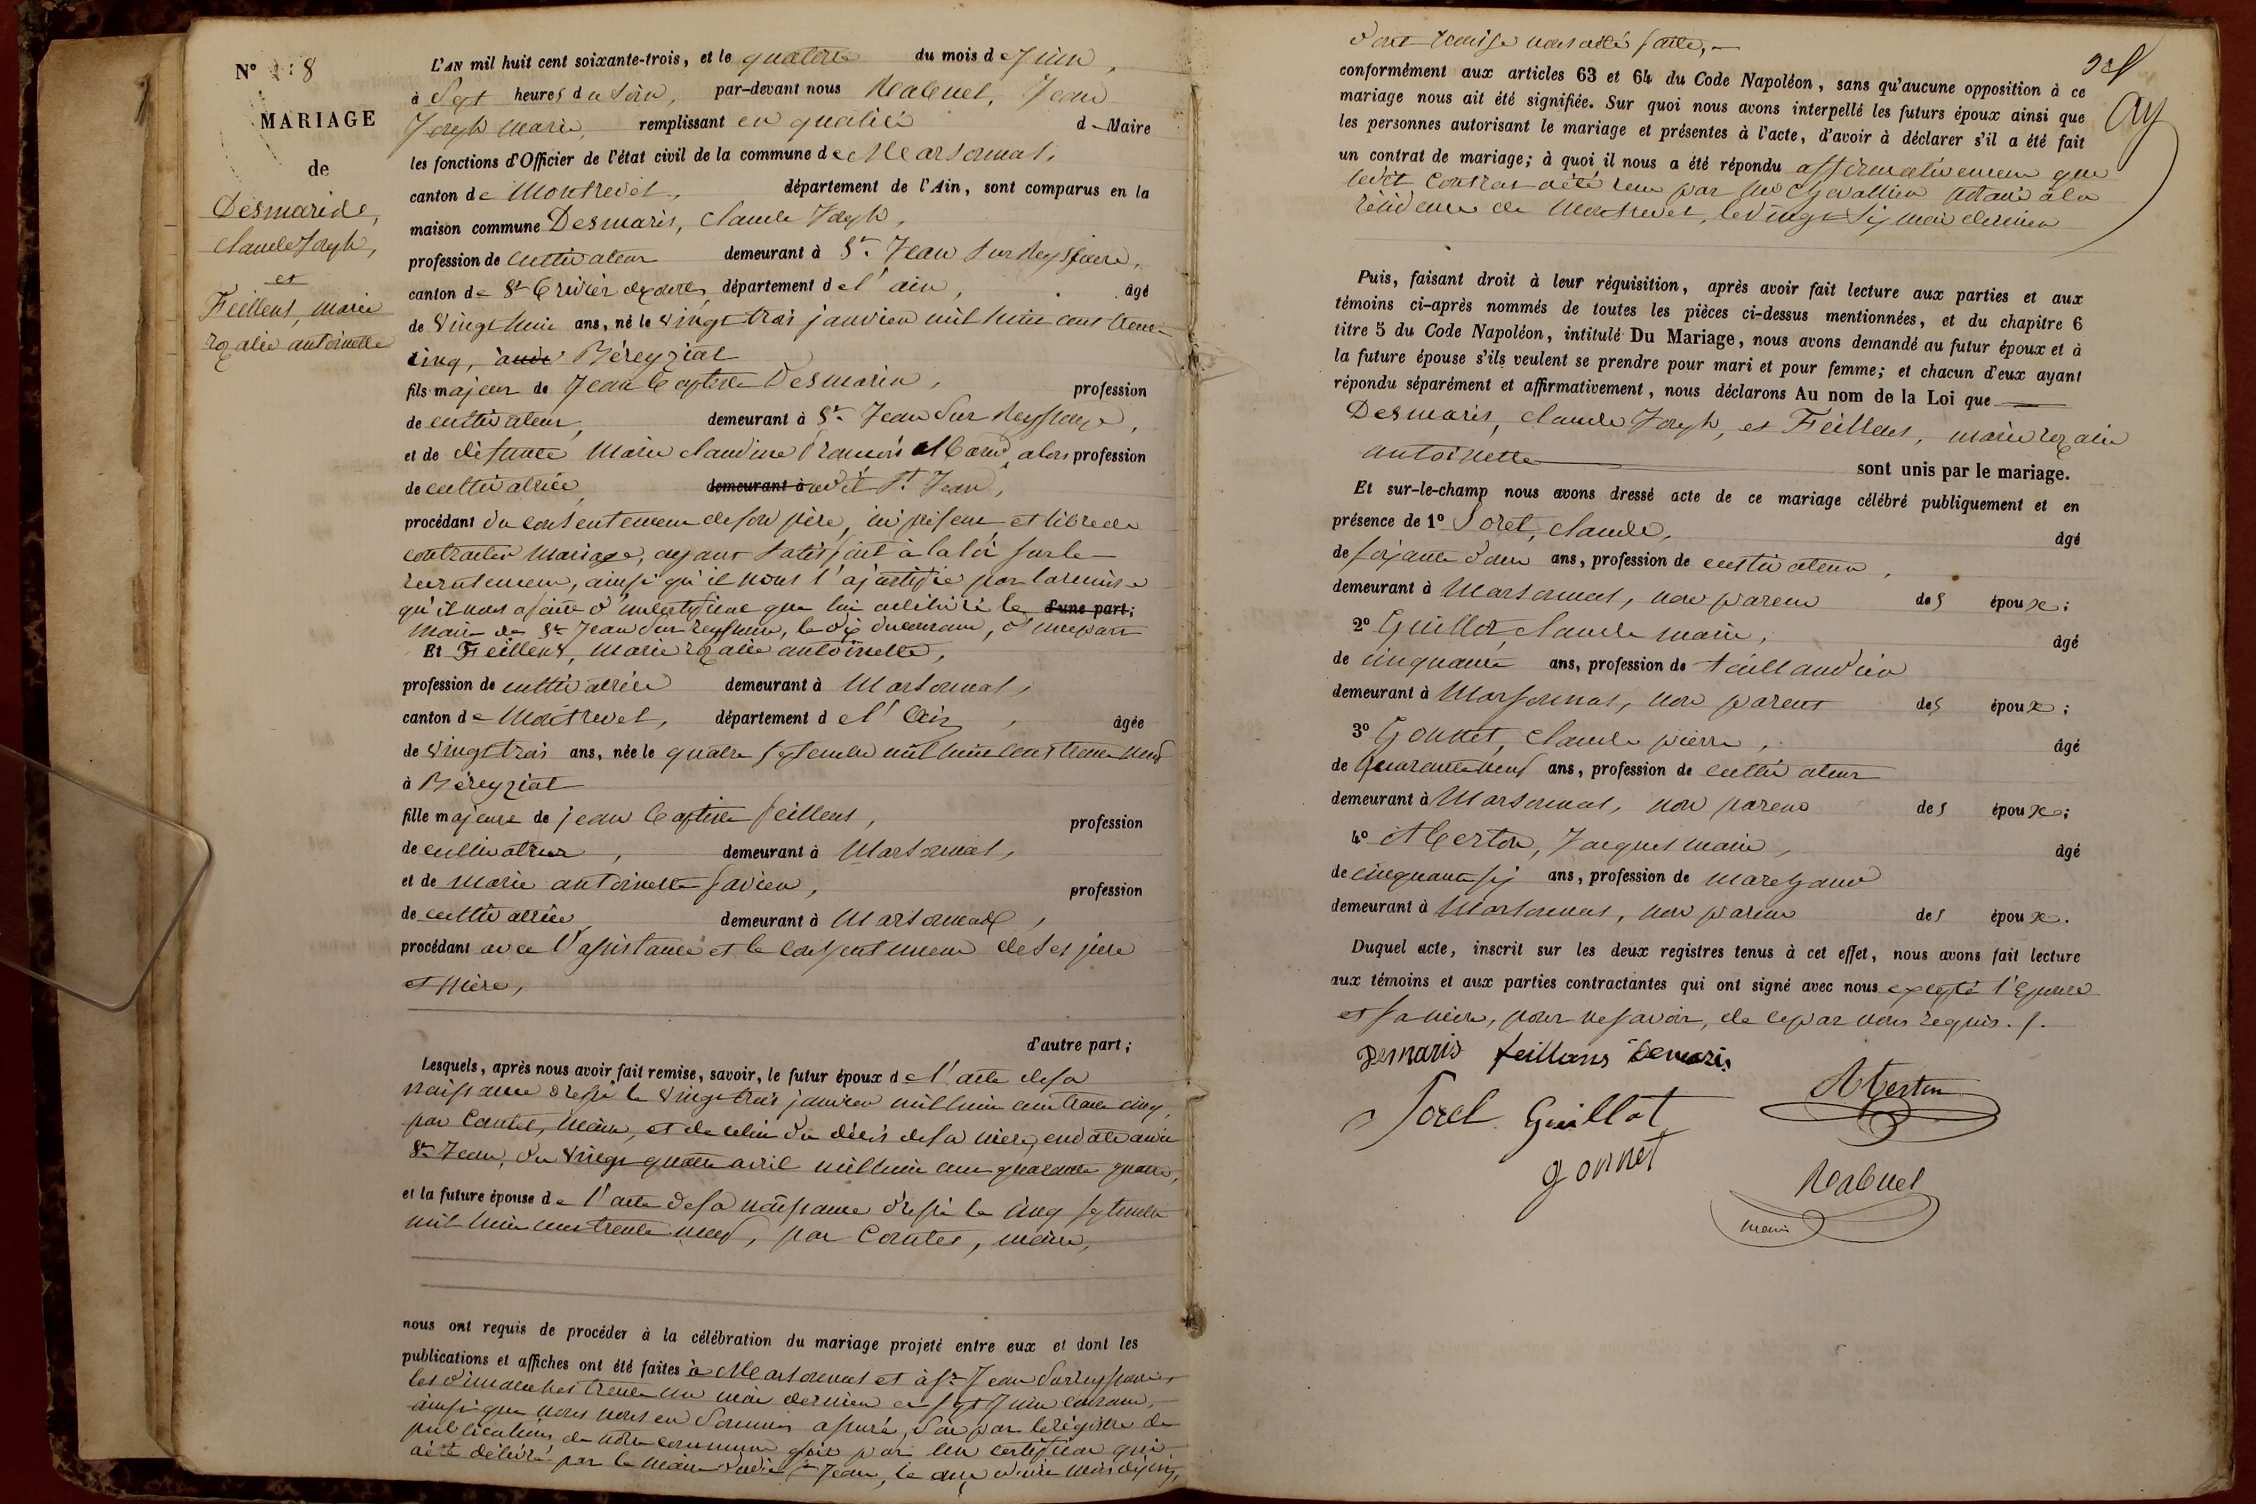 N° 8
MARIAGE
de
Desmaris,
Claude Joseph,
et
Feillens, marie
rozalie antoinette
L'AN mil huit cent soixante-trois, et le quatorze du mois de Juin,
à Sept heures du Soir, par-devant nous Rabuel, Jean
Joseph marie, remplissant en qualité d Maire
les fonctions d'Officier de l'état civil de la commune de Marsonnas,
canton de Montrevel, département de l'Ain, sont comparus en la
maison commune Desmaris, Claude Joseph,
profession de cultivateur demeurant à St. Jean Sur Reyssouze,
canton de St Trivier de courtes, département de l'ain, âgé
de vingt huit ans, né le vingt trois janvier mil huit cent trente
cinq, à Béreyziat
fils majeur de Jean Baptiste Desmaris, profession
de cultivateur, demeurant à St. Jean Sur Reyssouze,
et de défunte Marie Claudine Françoise alors profession
de cultivatrice, demeurant à audit St. Jean,
procédant du consentement de son père, ici présent, et libre de
contracter mariage, ayant satisfait à la loi sur le
recrutement, ainsi qu'il nous l'a justifié par la remise
qu'il nous a faite d'un certificat que lui a délivré le d'une part;
maire de St Jean Sur reyssouze, le dix du courant, d'une part
Et Feillens, Marie rozalie antoinette,
profession de cultivatrice demeurant à Marsonnas,
canton de Montrevel, département de l'Ain, âgée
de vingt trois ans, née le quatre septembre mil huit cent trente neuf
à Béreyziat
fille majeure de jean Baptiste feillens, profession
de cultivateur, demeurant à Marsonnas,
et de marie antoinette favier, profession
de cultivatrice demeurant à Marsonnas,
procédant avec l'assistance et le consentement de ses père
et mère,
d'autre part;
Lesquels, après nous avoir fait remise, savoir, le futur époux de l'acte de sa
naissance dressé le vingt trois janvier mil huit cent trente cinq,
par Contet, maire, et de celui du décès de sa mère, en date audit
St Jean, du vingt quatre avril mil huit cent quarante quatre,
et la future épouse de l'acte de sa naissance dressé le cinq septembre
mil huit cent trente neuf, par Contet, maire,
nous ont requis de procéder à la célébration du mariage projeté entre eux et dont les
publications et affiches ont été faites à Marsonnas et à St Jean Sur reyssouze
les dimanches trente un mai dernier et sept Juin courant,
ainsi que nous nous en sommes assuré, soit par le régistre de
publications de notre commune soit par un certificat qui
a été délivré par le maire dudit St Jean, le
dont remise nous a été faite,
conformément aux articles 63 et 64 du Code Napoléon, sans qu'aucune opposition à ce
mariage nous ait été signifiée. Sur quoi nous avons interpellé les futurs époux ainsi que
les personnes autorisant le mariage et présentes à l'acte, d'avoir à déclarer s'il a été fait
un contrat de mariage; à quoi il nous a été répondu affirmativement que
ledit contrat a été reçu par Me Chevallier notaire à la
résidence de Montrevel, le vingt six mai dernier
Puis, faisant droit à leur réquisition, après avoir fait lecture aux parties et aux
témoins ci-après nommés de toutes les pièces ci-dessus mentionnées, et du chapitre 6
titre 5 du Code Napoléon, intitulé Du Mariage, nous avons demandé au futur époux et à
la future épouse s'ils veulent se prendre pour mari et pour femme; et chacun d'eux ayant
répondu séparément et affirmativement, nous déclarons Au nom de la Loi que
Desmaris, Claude Joseph, et Feillens, marie rozalie
antoinette sont unis par le mariage.
Et sur-le-champ nous avons dressé acte de ce mariage célébré publiquement et en
présence de 1° Sorel, Claude, âgé
de soixante deux ans, profession de cultivateur,
demeurant à Marsonnas, non parent des époux;
2° Guillot, Claude marie, âgé
de cinquante ans, profession de taillandier
demeurant à Marsonnas, non parent des époux;
3° Gonnet, Claude pierre, âgé
de quarante neuf ans, profession de cultivateur
demeurant à Marsonnas, non parent des époux;
4° Merton, Jacques marie, âgé
de cinquante six ans, profession de marchand
demeurant à Marsonnas, non parent des époux.
Duquel acte, inscrit sur les deux registres tenus à cet effet, nous avons fait lecture
aux témoins et aux parties contractantes qui ont signé avec nous excepté l'Epouse
et sa mère, pour ne savoir, de ce par nous requis.
Demaris feillans Demaris
Sorel Guillot
gonnet Rabuel
maire